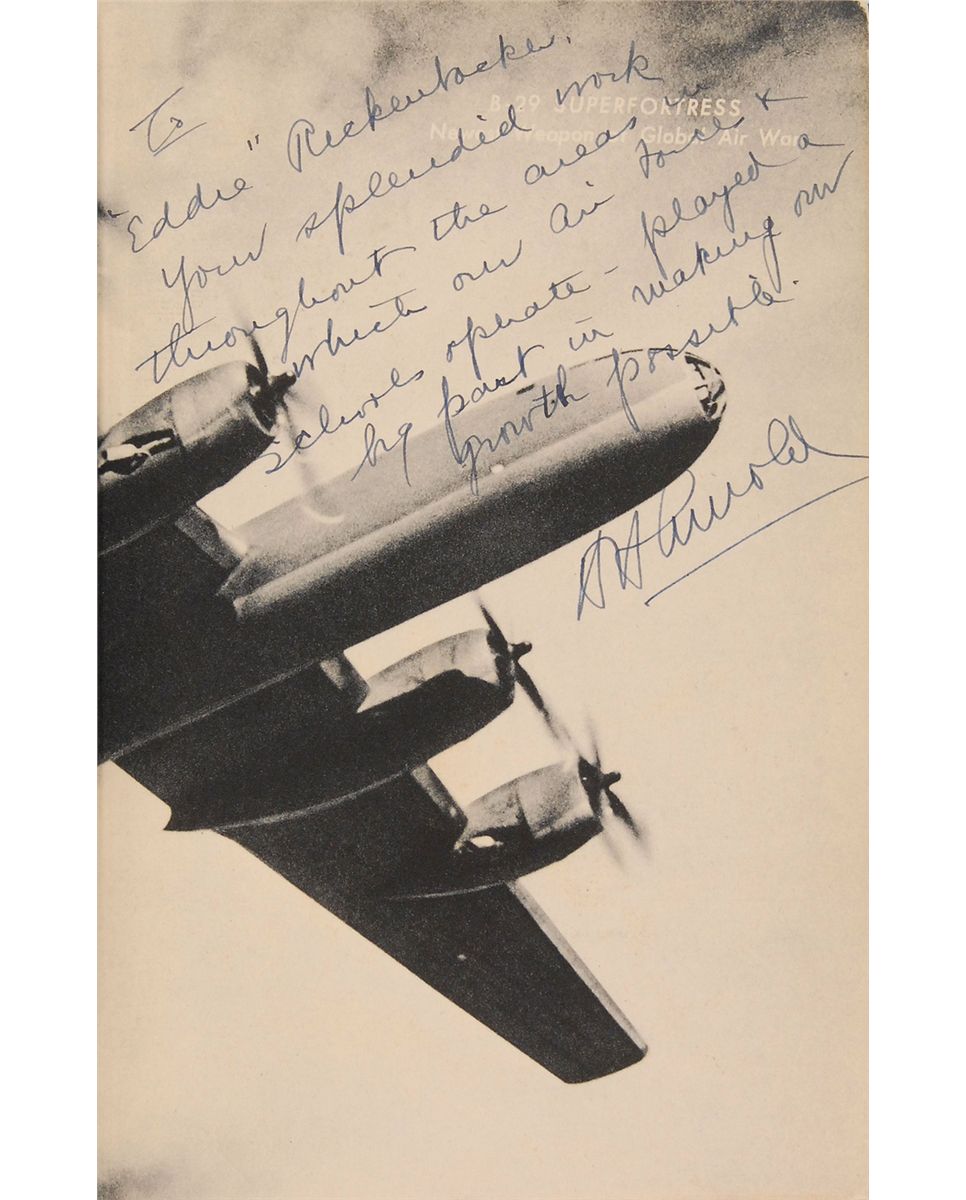 B-29 SUPERFORTRESS
Newest Weapon of Global Air War
To
"Eddie" Rickenbacker.
Your splendid work
throughout the areas in
which our Air Force &
schools operate - played a
big part in making our
growth possible.
HH Arnold